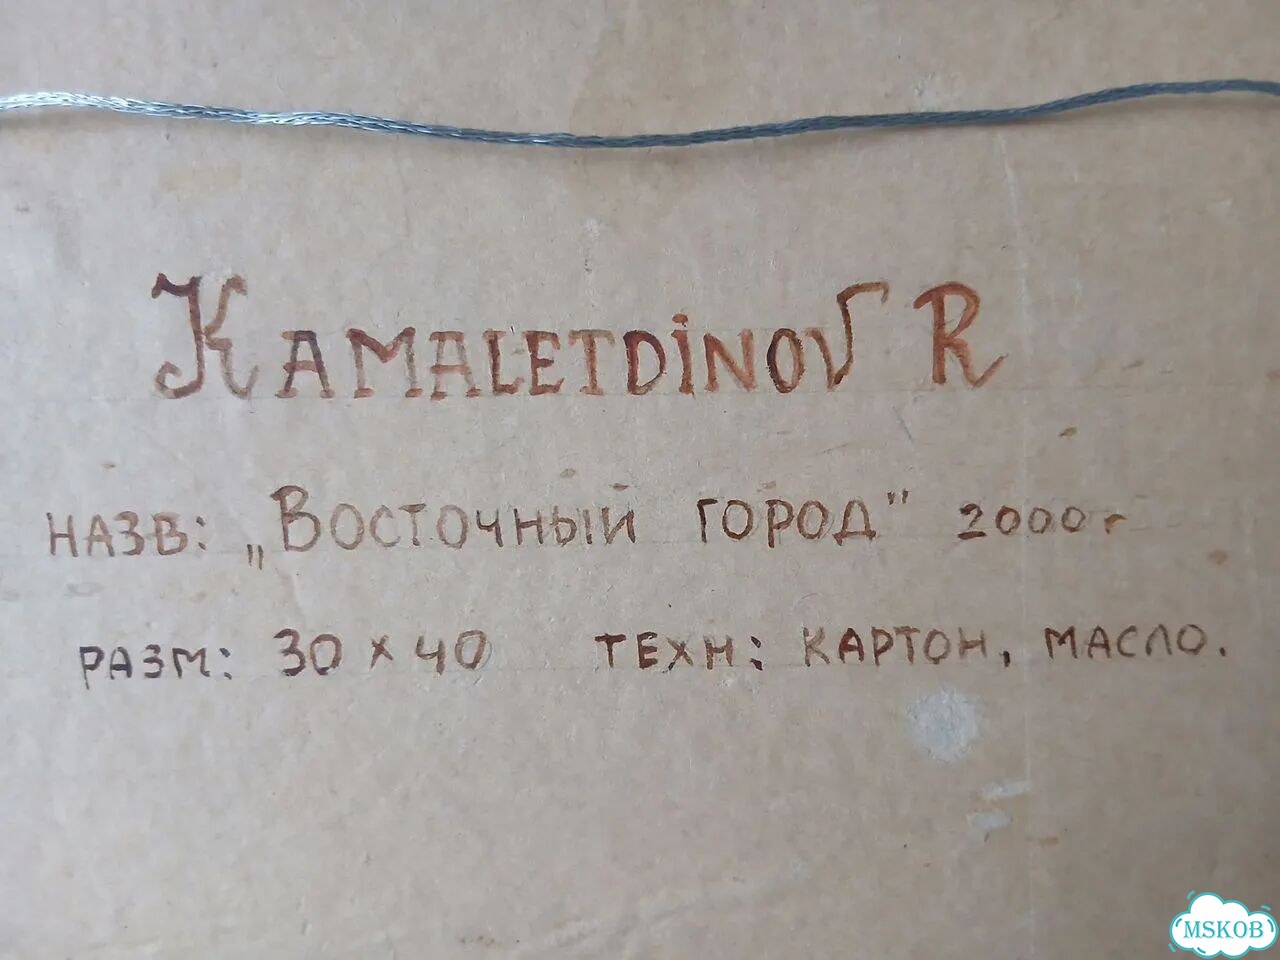 KAMALETDiNOV R
НАЗВ: „ВОСТОЧНЫЙ ГОРОД" 2000г
РАЗМ: 30 х 40 ТЕХН: КАРТОН, МАСЛО.
MSKOB